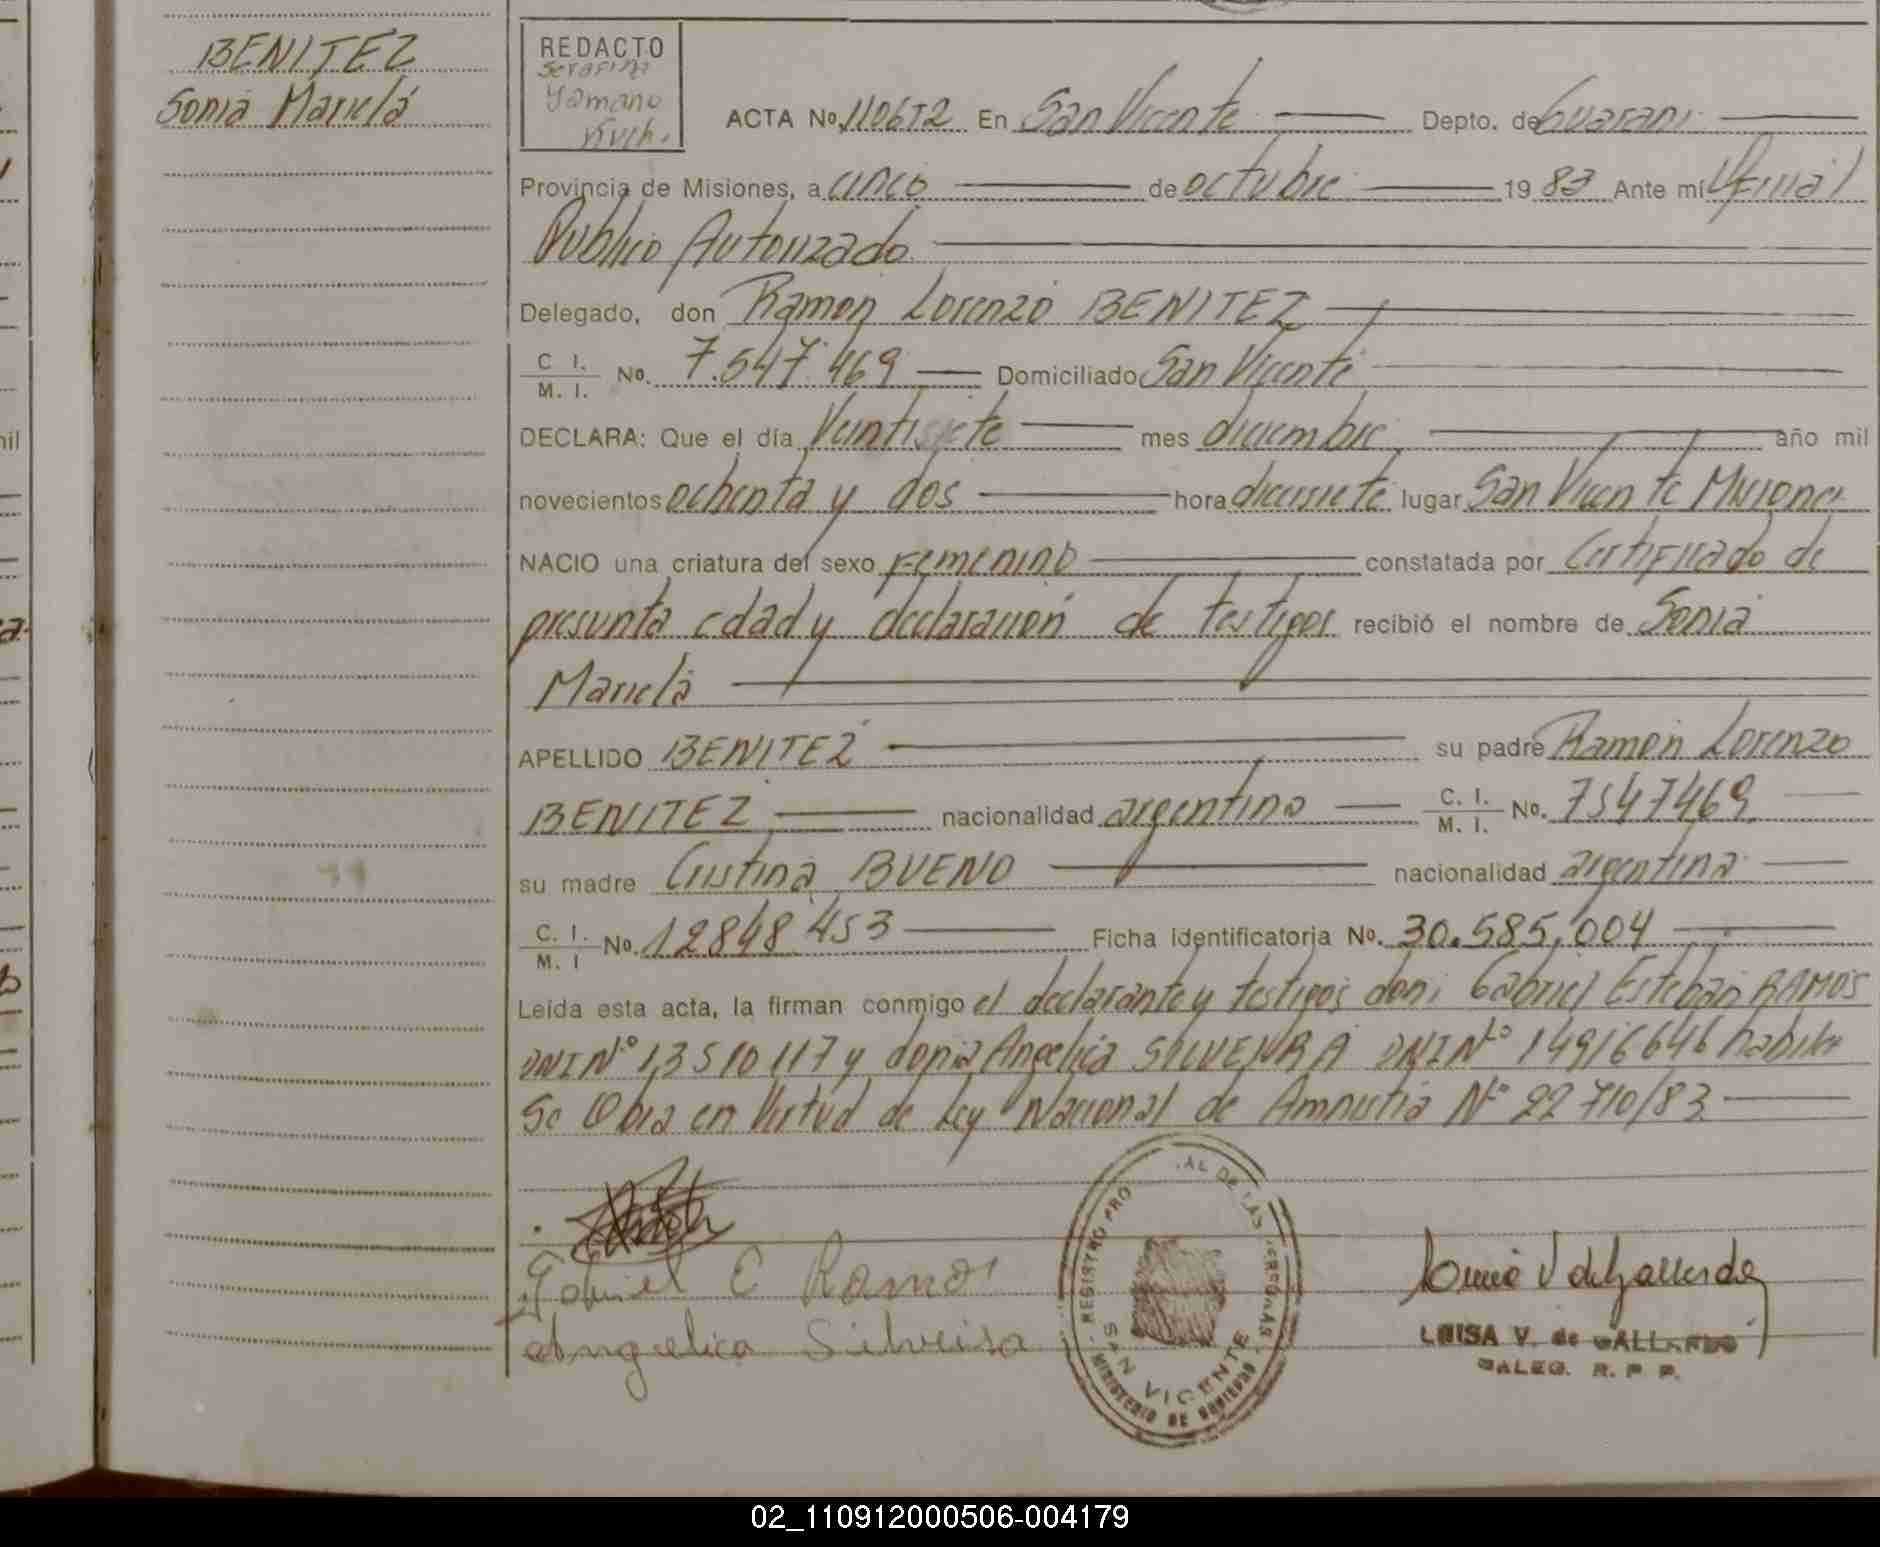 BENITEZ
Sonia Mariela
REDACTO
Serafina
Yamano
ACTA No. 110652 En San Vicente Depto. de Guarani
Provincia de Misiones, a cinco de octubre 1983 Ante mí Oficial
Publico Autorizado
Delegado, don Ramon Lorenzo BENITEZ
C. I. / M. I. No. 7.547.469 Domiciliado San Vicente
DECLARA: Que el día Veintisiete mes diciembre año mil
novecientos ochenta y dos hora diecisiete lugar San Vicente Misiones
NACIO una criatura del sexo Femenino constatada por Certificado de
presunta edad y declaración de testigos recibió el nombre de Sonia
Mariela
APELLIDO BENITEZ su padre Ramon Lorenzo
BENITEZ nacionalidad argentina C. I. / M. I. No. 7547469
su madre Cristina BUENO nacionalidad argentina
C. I. / M. I No. 12848453 Ficha identificatoria No. 30.585.004
Leída esta acta, la firman conmigo el declarante y testigos don: Gabriel Esteban RAMOS
DNI Nº 13510117 y doña Angelica SILVEIRA DNI Nº 14916646 habiles
Se Obra en Virtud de Ley Nacional de Amnistia Nº 22710/83
Gabriel E Ramos
Angelica Silveira
REGISTRO PRO AL DE LAS PERSONAS
SAN VICENTE
MINISTERIO DE GOBIERNO
LUISA V. de GALLARDO
DALEG. R. P. P.
02_110912000506-004179